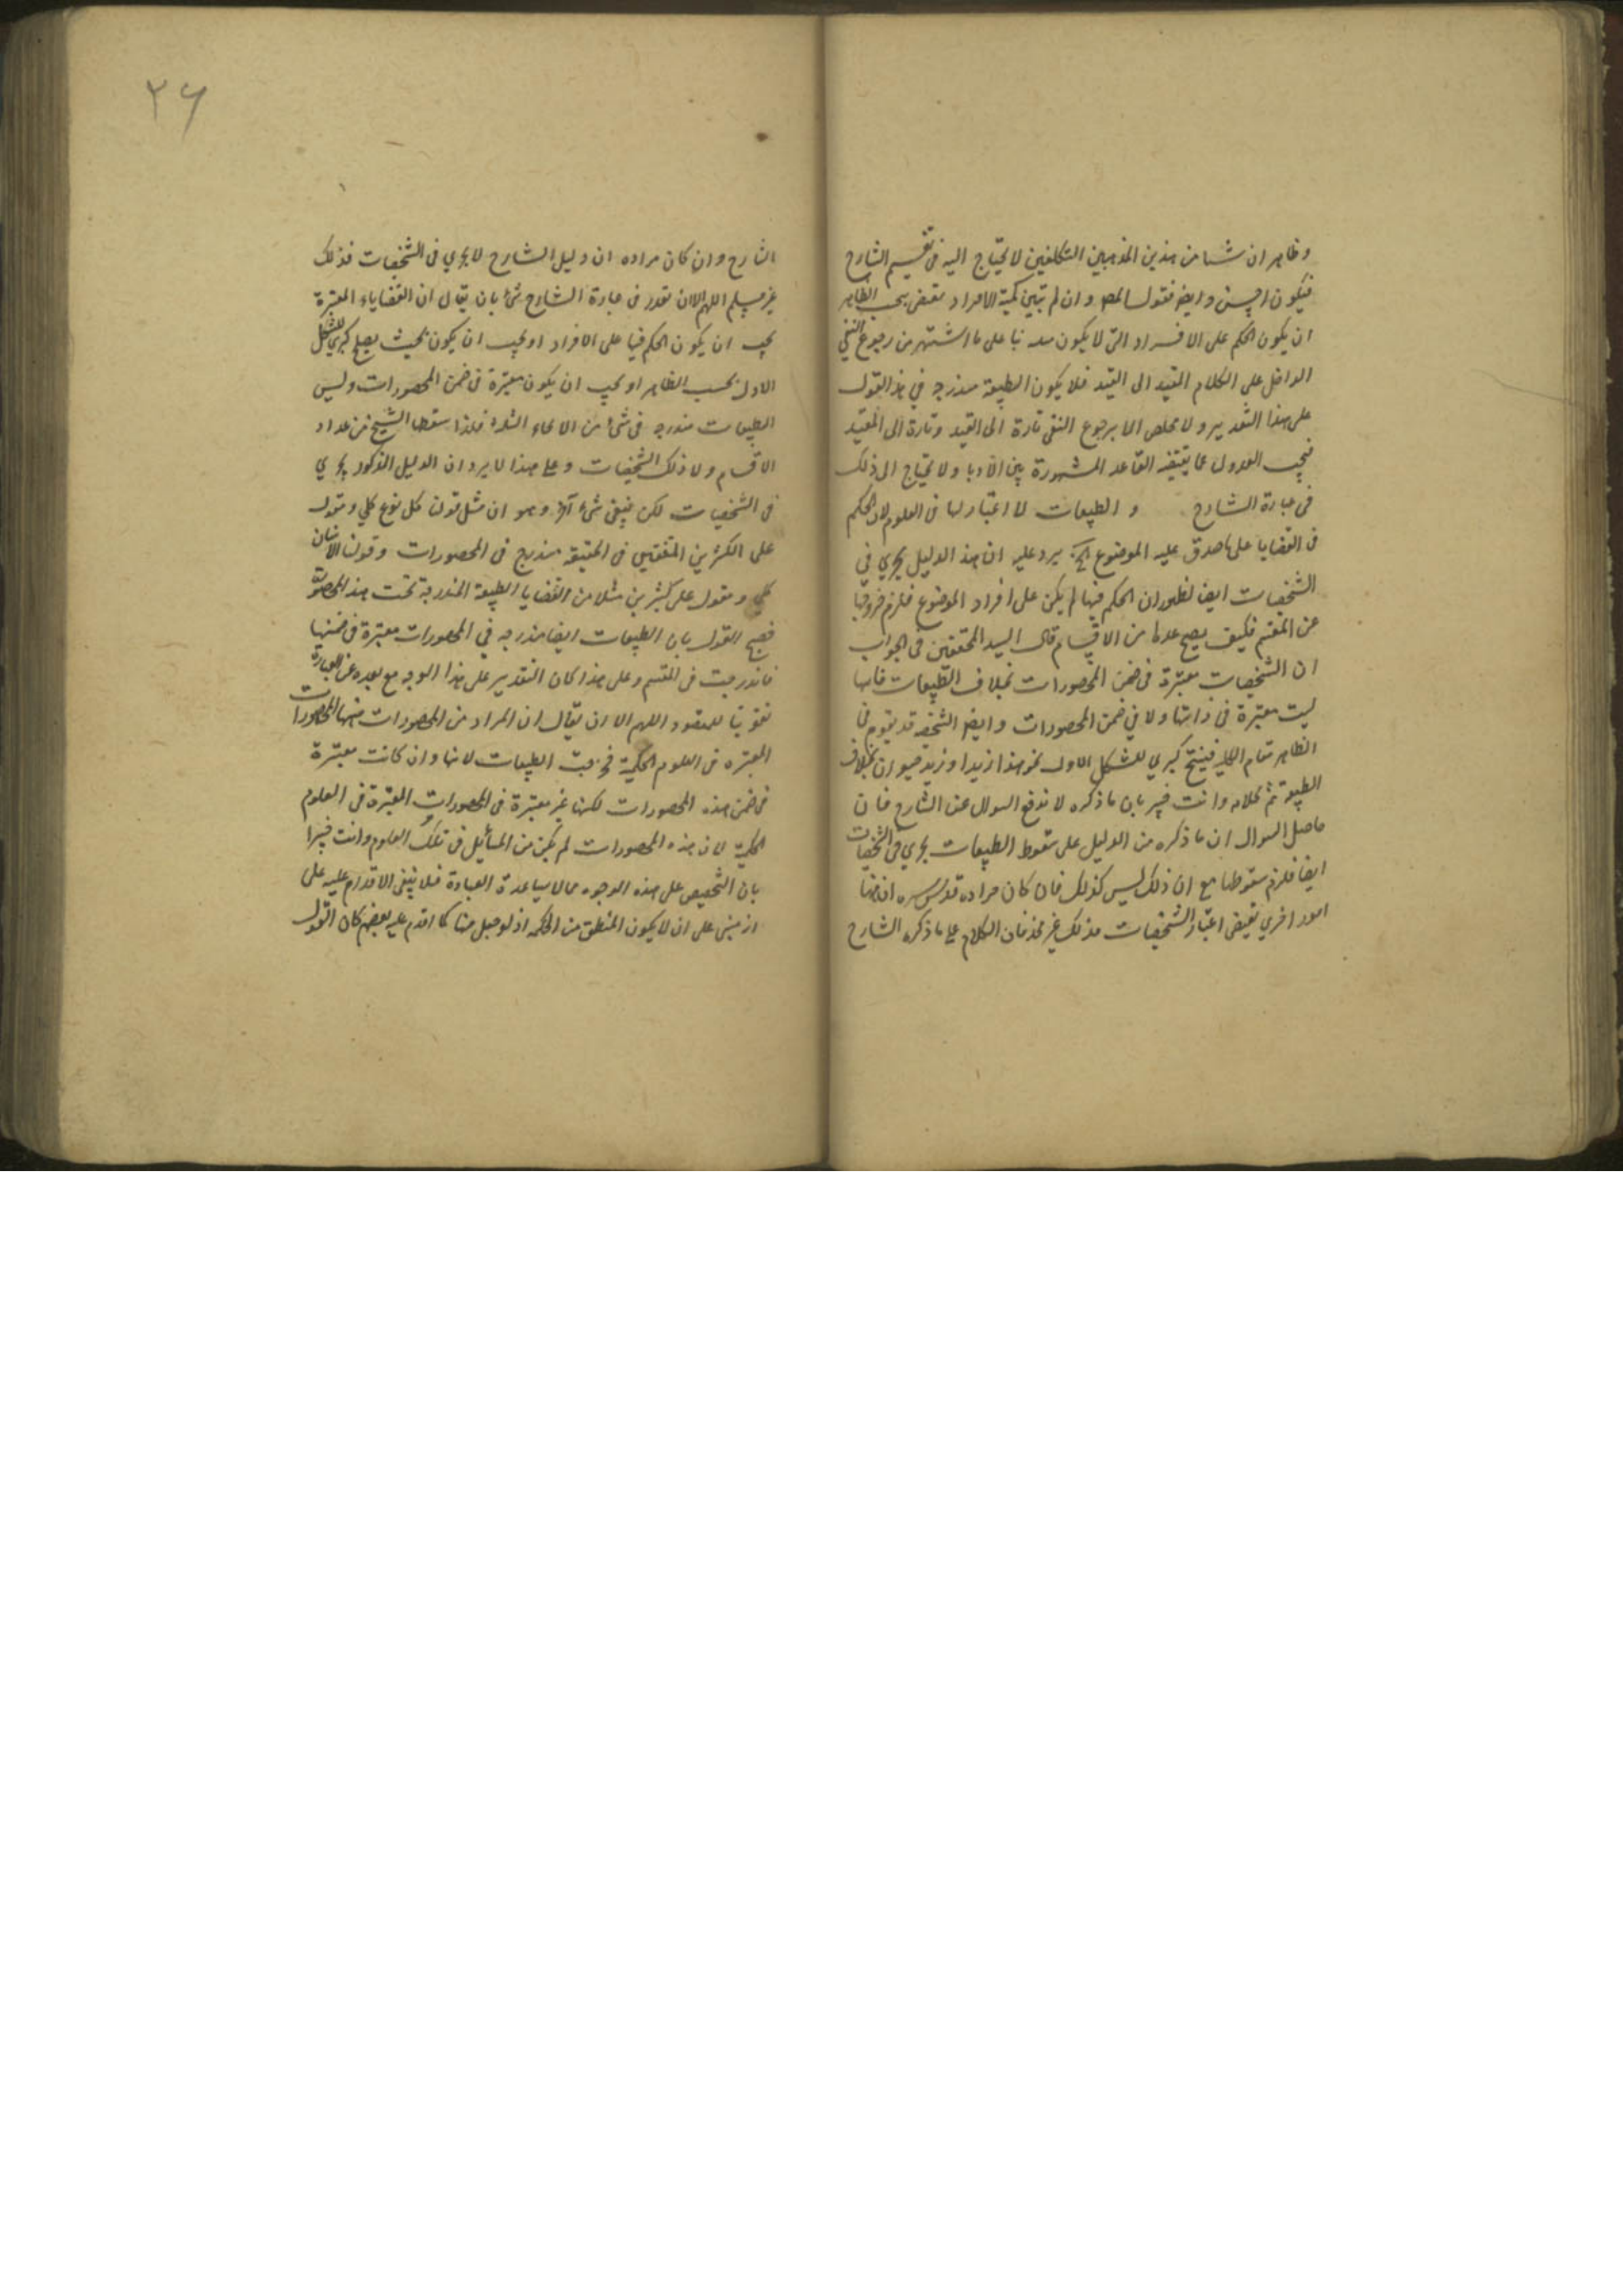 وظاهر ان شيئا من هذين المذهبين التكلفين لا يحتاج اليه في تقسيم الشارح
فيكون احسن وايضا فقول المص وان لم تبين كمية الافراد مقتض بحسب الظاهر
ان يكون الحكم على الافراد التي لا يكون بناء على ما اشتهر من رجوع النفي
الداخل على الكلام المقيد الى القيد فلا يكون الطبيعة مندرجة في هذا القول
على هذا التقدير ولا مخلص الا برجوع النفي تارة الى القيد وتارة الى المقيد
فيجب العدول عما يقتضيه القاعدة المشهورة بين الادبا ولا يحتاج الى ذلك
في عبارة الشارح والطبيعات لا اعتبار لها في العلوم لان الحكم
في القضايا على ما صدق عليه الموضوع الخ يرد عليه ان هذا الدليل يجري في
الشخصيات ايضا لظهور ان الحكم فيها لم يكن على افراد الموضوع فلزم خروجها
عن المقسم فكيف يصح عدها من الاقسام قال السيد المحققين في الجواب
ان الشخصيات معتبرة في ضمن المحصورات بخلاف الطبيعات فانها
ليست معتبرة في ذاتها ولا في ضمن المحصورات وايضا الشخصية قد تقوم في
الظاهر مقام الكلية فينتج كبرى للشكل الاول نحو هذا زيد وزيد حيوان بخلاف
الطبيعة تم كلامه وانت خبير بان ما ذكره لا يدفع السوال عن الشارح فان
حاصل السوال ان ما ذكره من الدليل على سقوط الطبيعات يجري في الشخصيات
ايضا فلزم سقوطها مع ان ذلك ليس كذلك فان كان مراده قدس سره ان هنا
امور اخري تقتضي اعتبار الشخصيات فذلك غير فان الكلام على ما ذكره الشارح
٢٦
الشارح وان كان مراده ان دليل الشارح لا يجري في الشخصيات فذلك
غير مسلم اللهم الا ان يقدر في عبارة الشارح شئ بان يقال ان القضايا المعتبرة
يجب ان يكون الحكم فيها على الافراد او يجب ان يكون بحيث يصلح كبري للشكل
الاول بحسب الظاهر او يجب ان يكون معتبرة في ضمن المحصورات وليس
الطبيعات مندرجة في شئ من الانحاء الثلاثة فلذا سقطها الشيخ من عداد
الاقسام ولا ذلك الشخصيات وعلى هذا لا يرد ان الدليل المذكور يجري
في الشخصيات لكن يبقى شئ آخر وهو ان مثل قولنا كل نوع كلي ومقول
على الكثيرين المتفقين في الحقيقة مندرج في المحصورات وقولنا الانسان
كلي ومقول على كثيرين مثلا من القضايا الطبيعة المندرجة تحت هذه المحصورة
فصح القول بان الطبيعات ايضا مندرجة في المحصورات معتبرة في ضمنها
فاندرجت في المقسم وعلى هذا كان التقدير على هذا الوجه مع بعده عن العبارة
للمقصود اللهم الا ان يقال ان المراد من المحصورات منها المحصورات
المعتبره في العلوم الحكمية فخرجت الطبيعات لانها وان كانت معتبرة
في ضمن هذه المحصورات لكنها غير معتبرة في المحصورات المعتبرة في العلوم
الحكمية لان هذه المحصورات لم يكن من المسائل في تلك العلوم وانت خبير
بان التخصيص على هذه الوجوه مما لا يساعده العبارة فلا ينبغي الاقدام عليه على
انه مبنى على ان لا يكون المنطق من الحكمة اذ لو جعل منها كما اقدم عليه بعضهم كان القول